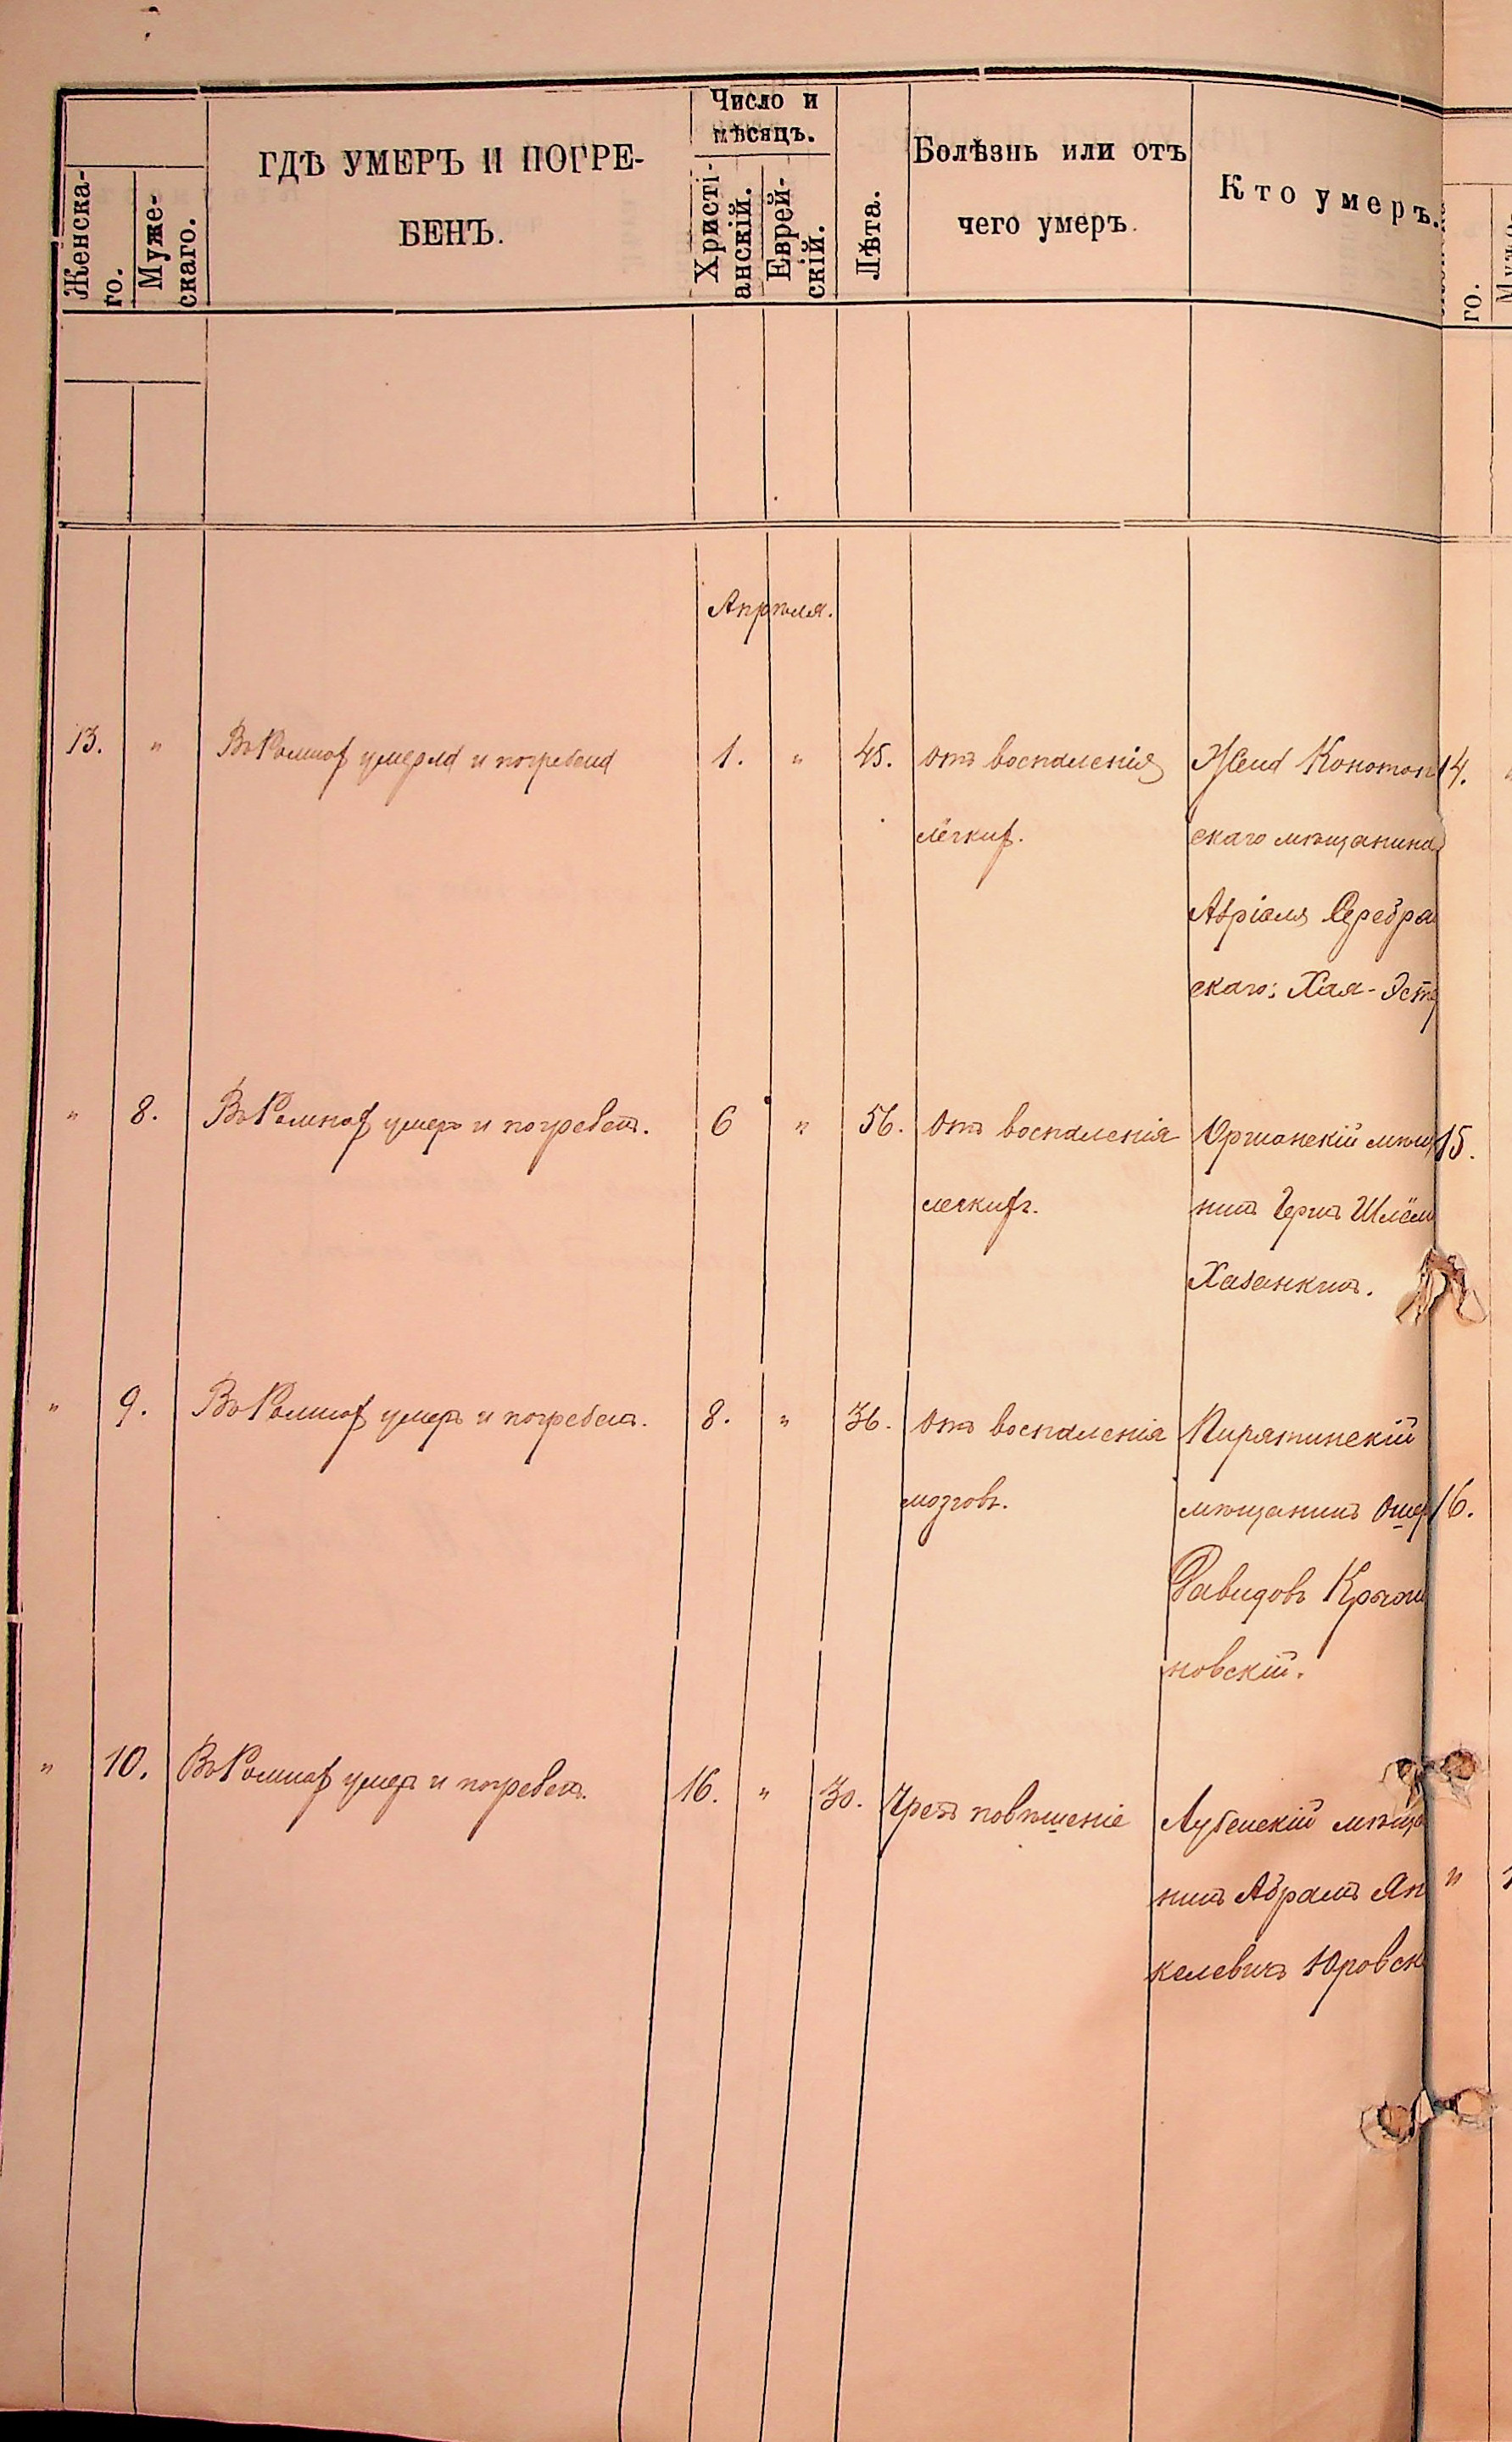 Женска-
го.
Муже-
скаго.
ГДѢ УМЕРЪ И ПОГРЕ-
БЕНЪ.
Число и
мѣсяцъ.
Христі-
анскій.
Еврей-
скій.
Лѣта.
Болѣзнь или отъ
чего умеръ.
Кто умеръ.
го.
Апрѣля.
13. " Въ Ромнахъ умерла и погребена 1. " 45. отъ воспаленія Жена Конотоп 14.
лёгкихъ. скаго мѣщанина
Абріаля Серебра
скаго: Хая-Эст
" 8. Въ Ромнахъ умеръ и погребенъ. 6 " 56. отъ воспаленія Оршанскій мѣщ 15.
легкихъ. нинъ Герца Шлём
Хазанкинъ.
" 9. Въ Ромнахъ умеръ и погребенъ. 8. " 36. отъ воспаленія Пирятинскій
мозговъ. мѣщанинъ Ошер 16.
Давидовъ
новскій.
" 10. Въ Ромнахъ умеръ и погребенъ. 16. " 30. Чрезъ повѣшеніе Лубенскій мѣща
нинъ Абрамъ Ян "
келевичъ Юровск